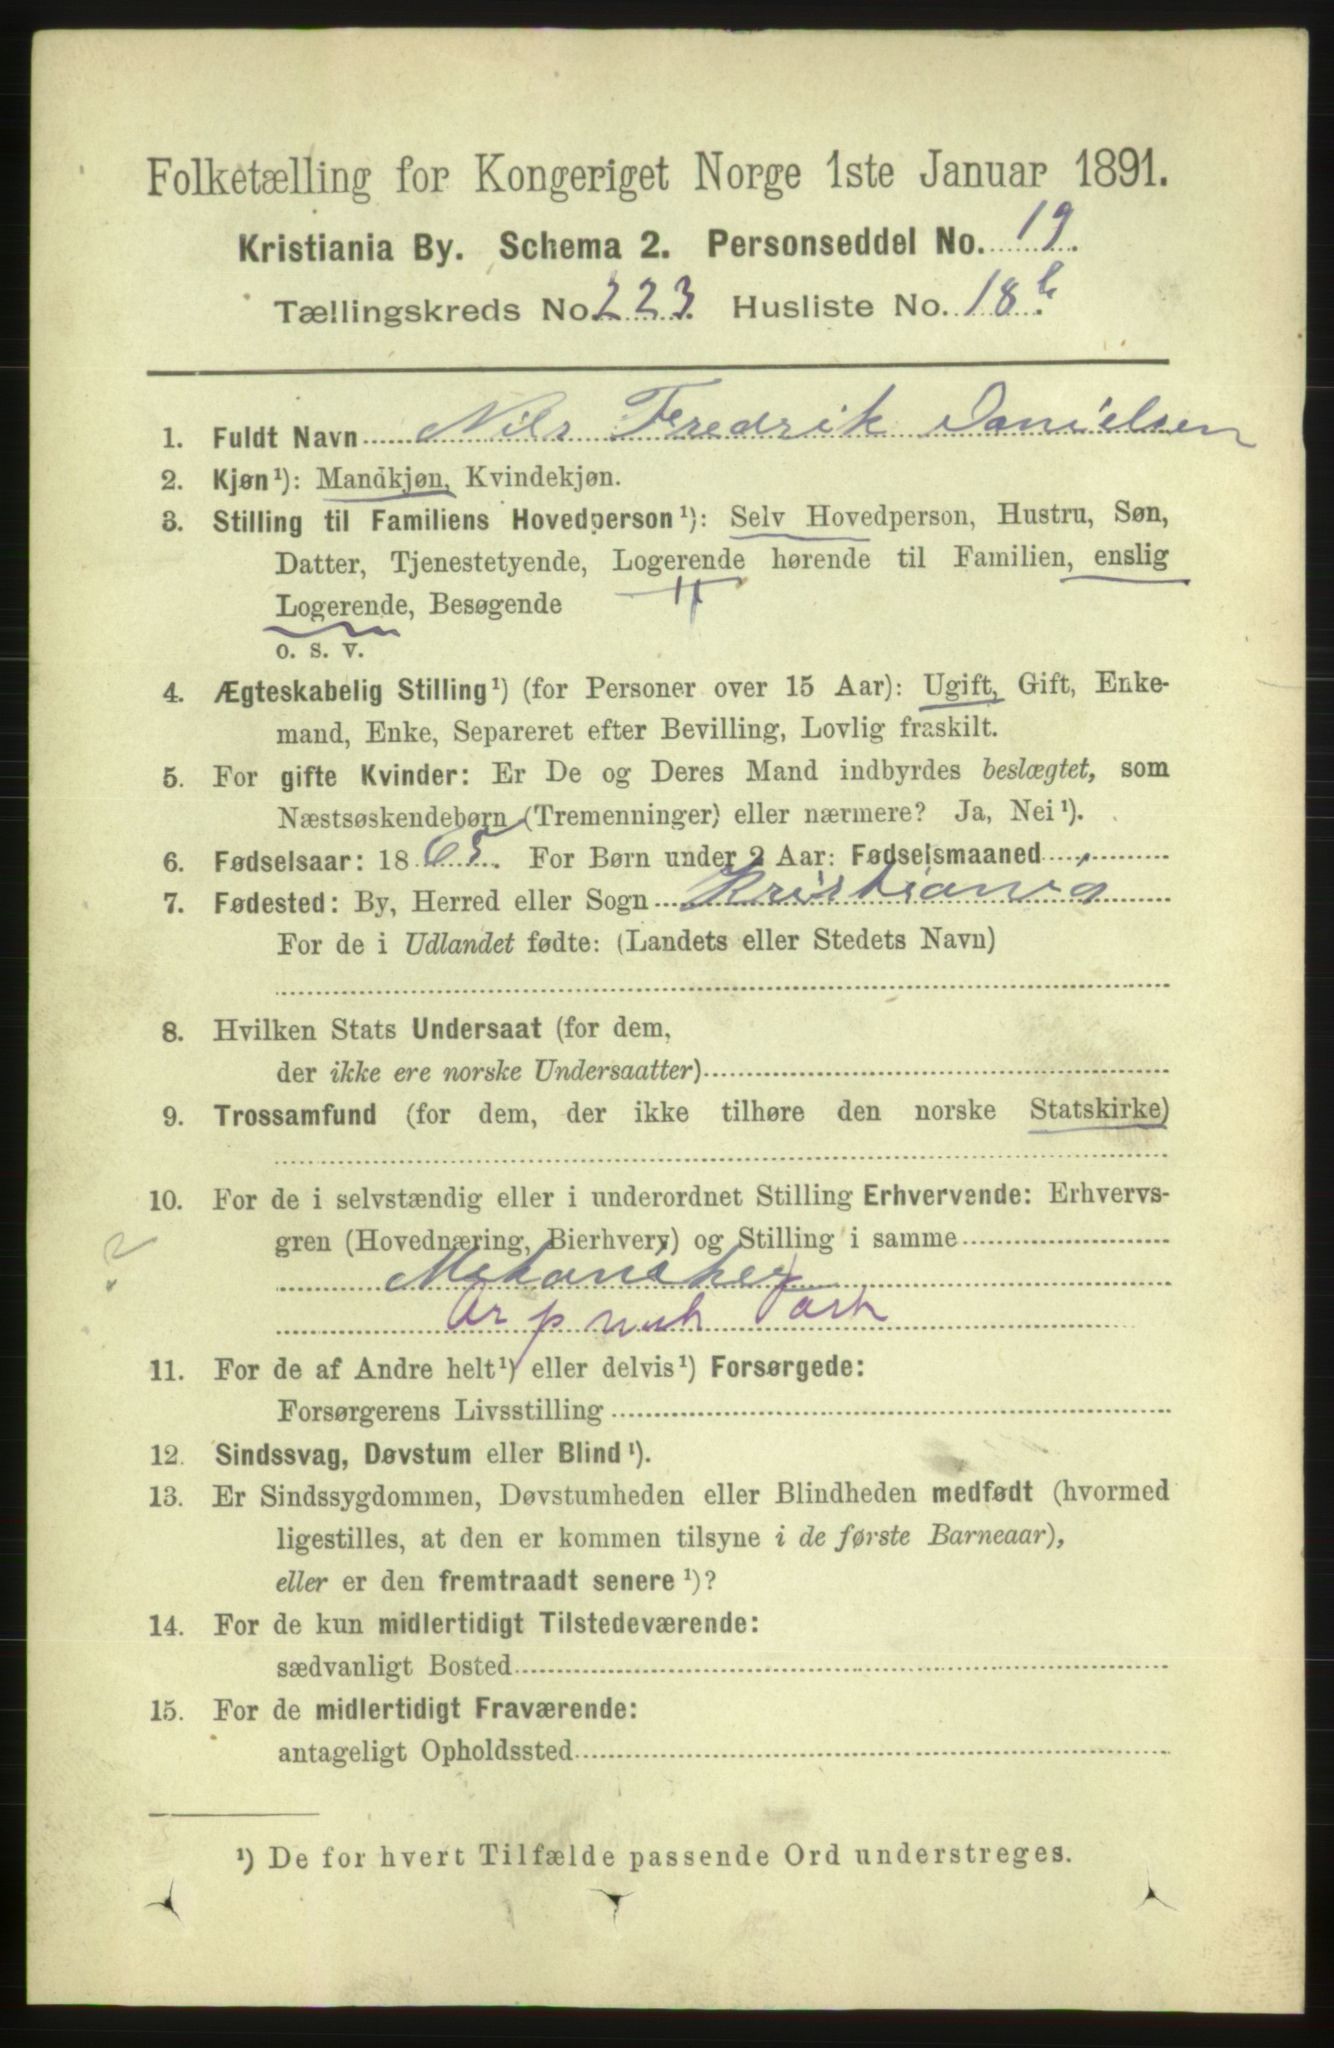 Folketælling for Kongeriget Norge 1ste Januar 1891.
Kristiania By. Schema 2. Personseddel No. 19.
Tællingskreds No. 223. Husliste No. 18b.
1. Fuldt Navn Nils Fredrik Danielsen
2. Kjøn¹): Mandkjøn, Kvindekjøn.
3. Stilling til Familiens Hovedperson¹): Selv Hovedperson, Hustru, Søn,
Datter, Tjenestetyende, Logerende hørende til Familien, enslig
Logerende, Besøgende
o. s. v.
4. Ægteskabelig Stilling¹) (for Personer over 15 Aar): Ugift, Gift, Enke-
mand, Enke, Separeret efter Bevilling, Lovlig fraskilt.
5. For gifte Kvinder: Er De og Deres Mand indbyrdes beslægtet, som
Næstsøskendebørn (Tremenninger) eller nærmere? Ja, Nei¹).
6. Fødselsaar: 1865. For Børn under 2 Aar: Fødselsmaaned
7. Fødested: By, Herred eller Sogn Kristiania
For de i Udlandet fødte: (Landets eller Stedets Navn)
8. Hvilken Stats Undersaat (for dem,
der ikke ere norske Undersaatter)
9. Trossamfund (for dem, der ikke tilhøre den norske Statskirke)
10. For de i selvstændig eller i underordnet Stilling Erhvervende: Erhvervs-
gren (Hovednæring, Bierhverv) og Stilling i samme
Mekaniker
Arp
11. For de af Andre helt¹) eller delvis¹) Forsørgede:
Forsørgerens Livsstilling
12. Sindssvag, Døvstum eller Blind¹).
13. Er Sindssygdommen, Døvstumheden eller Blindheden medfødt (hvormed
ligestilles, at den er kommen tilsyne i de første Barneaar),
eller er den fremtraadt senere¹)?
14. For de kun midlertidigt Tilstedeværende:
sædvanligt Bosted
15. For de midlertidigt Fraværende:
antageligt Opholdssted
¹) De for hvert Tilfælde passende Ord understreges.